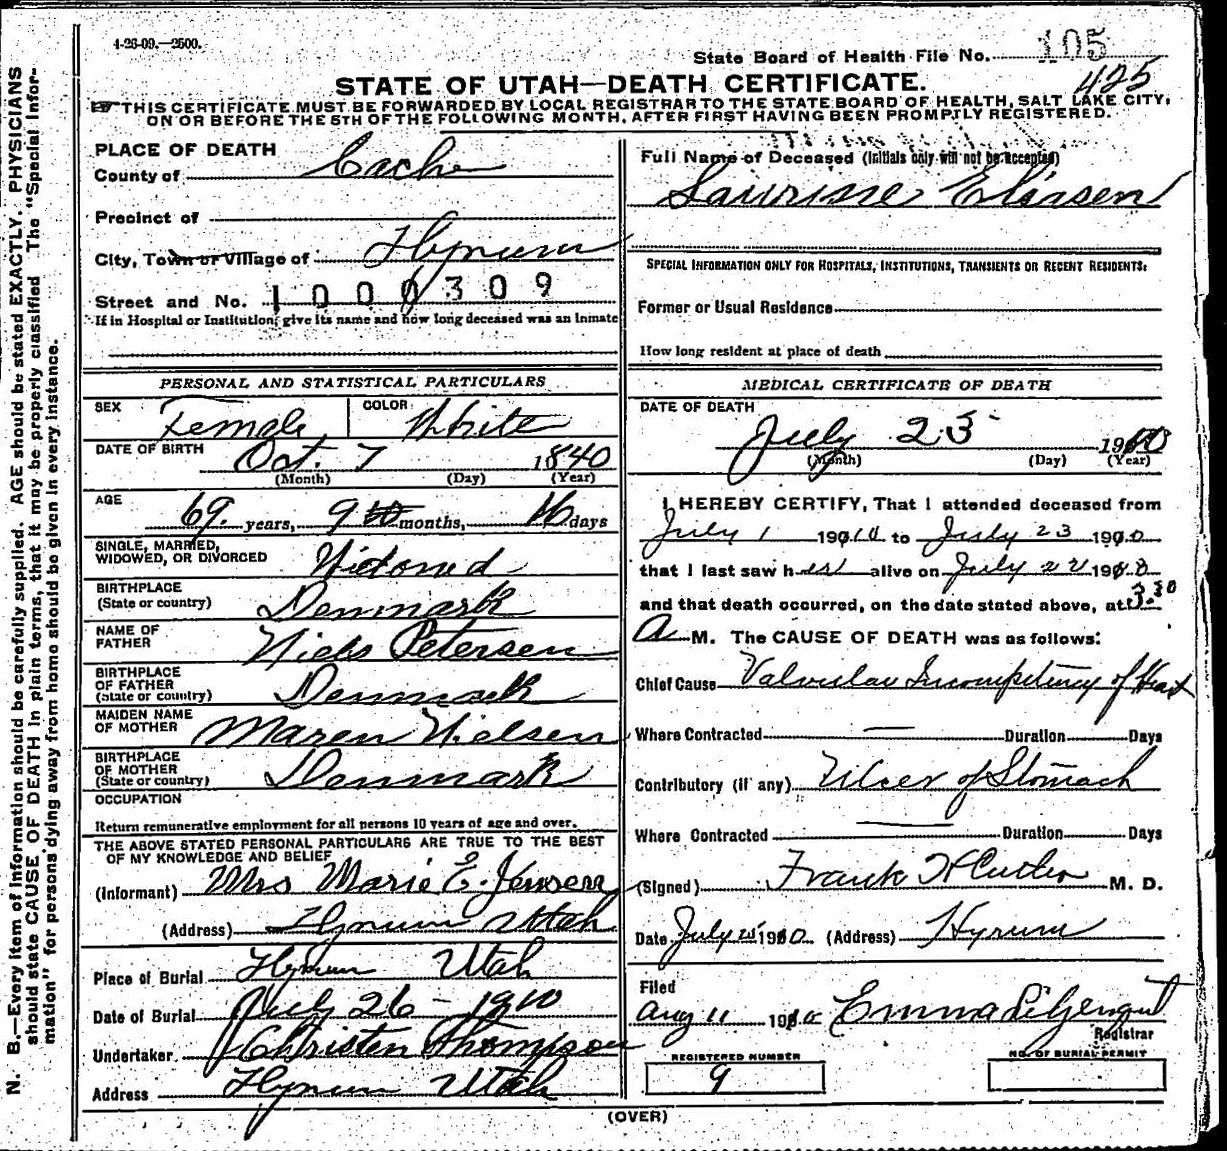 4-26-09.—2500.
State Board of Health File No. 105
425
STATE OF UTAH—DEATH CERTIFICATE.
THIS CERTIFICATE MUST BE FORWARDED BY LOCAL REGISTRAR TO THE STATE BOARD OF HEALTH, SALT LAKE CITY,
ON OR BEFORE THE 5TH OF THE FOLLOWING MONTH, AFTER FIRST HAVING BEEN PROMPTLY REGISTERED.
PLACE OF DEATH
County of Cache
Precinct of
City, Town or Village of Hyrum
Street and No. 1000309
If in Hospital or Institution, give its name and how long deceased was an inmate
PERSONAL AND STATISTICAL PARTICULARS
SEX Female COLOR White
DATE OF BIRTH Oct. 7 1840
(Month) (Day) (Year)
AGE
69. years, 9 months, 16 days
SINGLE, MARRIED,
WIDOWED, OR DIVORCED Widowed
BIRTHPLACE
(State or country) Denmark
NAME OF
FATHER Niels Petersen
BIRTHPLACE
OF FATHER
(State or country) Denmark
MAIDEN NAME
OF MOTHER Maren Nielsen
BIRTHPLACE
OF MOTHER
(State or country) Denmark
OCCUPATION
Return remunerative employment for all persons 10 years of age and over.
THE ABOVE STATED PERSONAL PARTICULARS ARE TRUE TO THE BEST
OF MY KNOWLEDGE AND BELIEF
(Informant) Mrs Marie E. Jensen
(Address) Hyrum Utah
Place of Burial Hyrum Utah
Date of Burial July 26 - 1910
Undertaker Christen Thompson
Address Hyrum Utah
Full Name of Deceased (Initials only will not be accepted)
Laurisne Eliasen
SPECIAL INFORMATION ONLY FOR HOSPITALS, INSTITUTIONS, TRANSIENTS OR RECENT RESIDENTS:
Former or Usual Residence
How long resident at place of death
MEDICAL CERTIFICATE OF DEATH
DATE OF DEATH
July 23 1910
(Month) (Day) (Year)
I HEREBY CERTIFY, That I attended deceased from
July 1 1910 to July 23 1910
that I last saw her alive on July 22 1910
and that death occurred, on the date stated above, at 3.30
A M. The CAUSE OF DEATH was as follows:
Chief Cause Valvular Incompetency of Heart
Where Contracted — Duration Days
Contributory (if any) Ulcer of Stomach
Where Contracted — Duration Days
(Signed) Frank H Cutler M. D.
Date July 25 1910 (Address) Hyrum
Filed
Aug 11 1910 Emma
Registrar
REGISTERED NUMBER
9
NO. OF BURIAL PERMIT
(OVER)
N. B.—Every item of information should be carefully supplied. AGE should be stated EXACTLY. PHYSICIANS
should state CAUSE OF DEATH in plain terms, that it may be properly classified The "Special Infor-
mation" for persons dying away from home should be given in every instance.